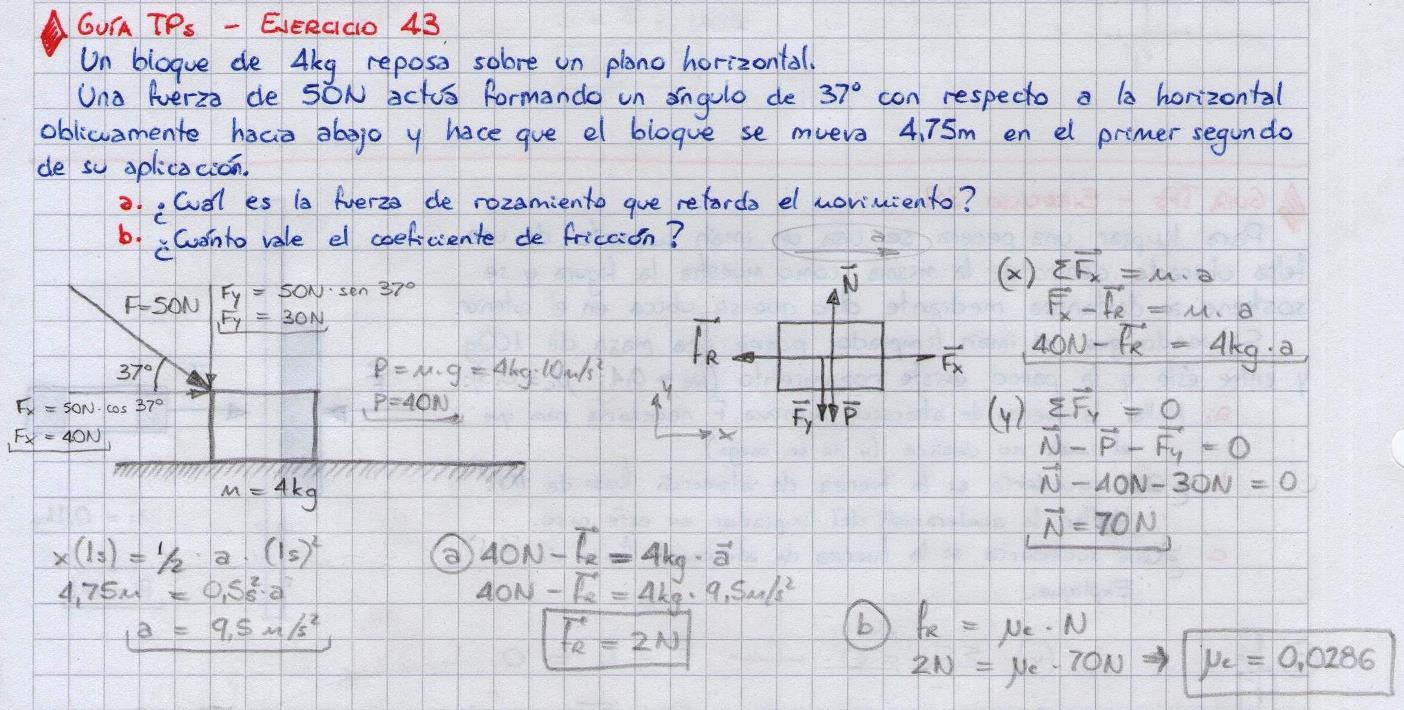 GUÍA TPs - EJERCICIO 43
Un bloque de 4kg reposa sobre un plano horizontal.
Una fuerza de 50N actúa formando un ángulo de 37° con respecto a la horizontal
oblicuamente hacia abajo y hace que el bloque se mueva 4,75m en el primer segundo
de su aplicación.
a. ¿Cuál es la fuerza de rozamiento que retarda el movimiento?
b. ¿Cuánto vale el coeficiente de fricción?
F=50N
Fy = 50N·sen 37°
Fy = 30N
37°
Fx = 50N·cos 37°
Fx = 40N
P = m.g = 4kg·10m/s²
P=40N
m = 4kg
N
fR
Fx
Fy P
y
x
a
(x) ΣFx = m.a
Fx - fR = m.a
40N - fR = 4kg.a
(y) ΣFy = 0
N - P - Fy = 0
N - 40N - 30N = 0
N = 70N
x(1s) = 1/2 · a · (1s)²
4,75m = 0,5s²·a
a = 9,5 m/s²
a 40N - fR = 4kg · a
40N - fR = 4kg · 9,5m/s²
fR = 2N
b fR = μc · N
2N = μc · 70N ⇒ μc = 0,0286